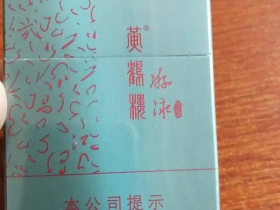 黄鹤楼®
游泳
本公司提示